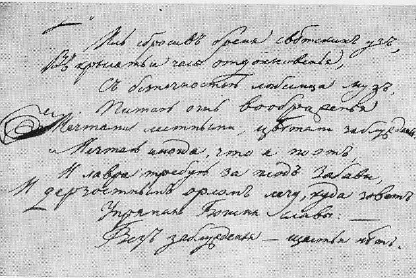 сбросивъ бремя свѣтскихъ узъ,
Въ крылаты часы отдохновенья,
Съ безпечностью любимца музъ,
Питаю огнь воображенья
Мечтами лестными, цвѣтами заблужденья.
Мечтаю иногда, что я поэтъ,
И лавра требую за плодъ забавы,
И дерзостнымъ орломъ лечу, куда зоветъ
Упрямая богиня славы: —
Безъ заблужденья — щастья нѣтъ.